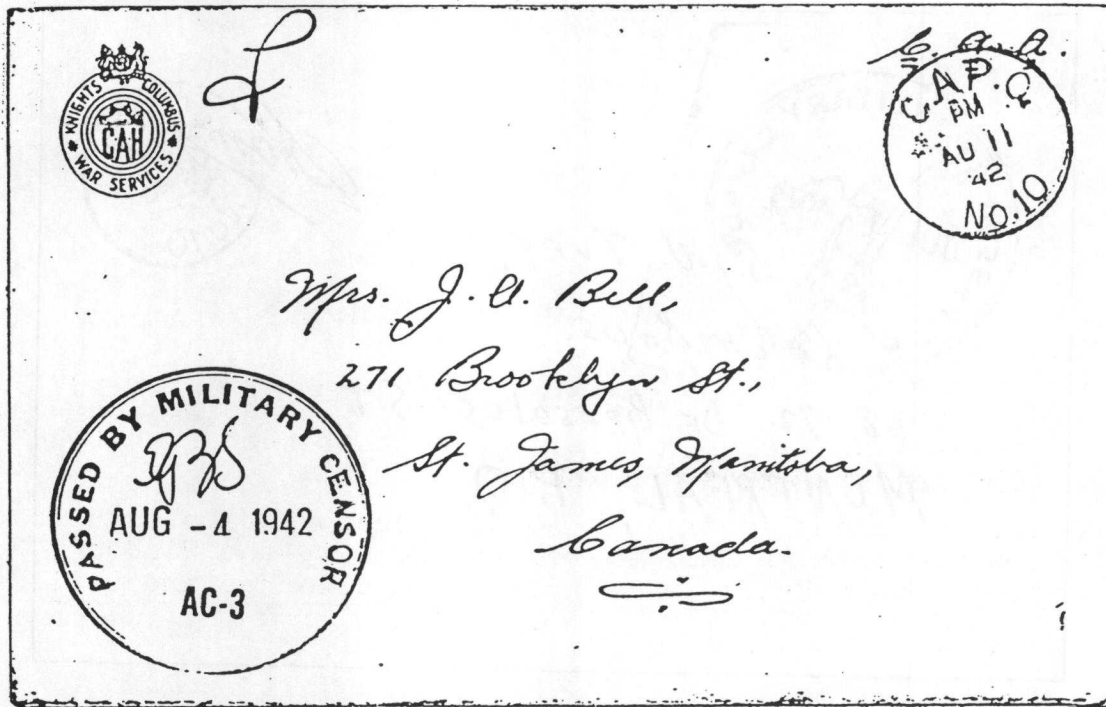 KNIGHTS COLUMBUS
CAH
WAR SERVICES
C.A.P.O
PM
AU 11
42
NO.10
Mrs. J. A. Bell,
271 Brooklyn St.,
St. James, Manitoba,
Canada.
PASSED BY MILITARY CENSOR
AUG - 4 1942
AC-3